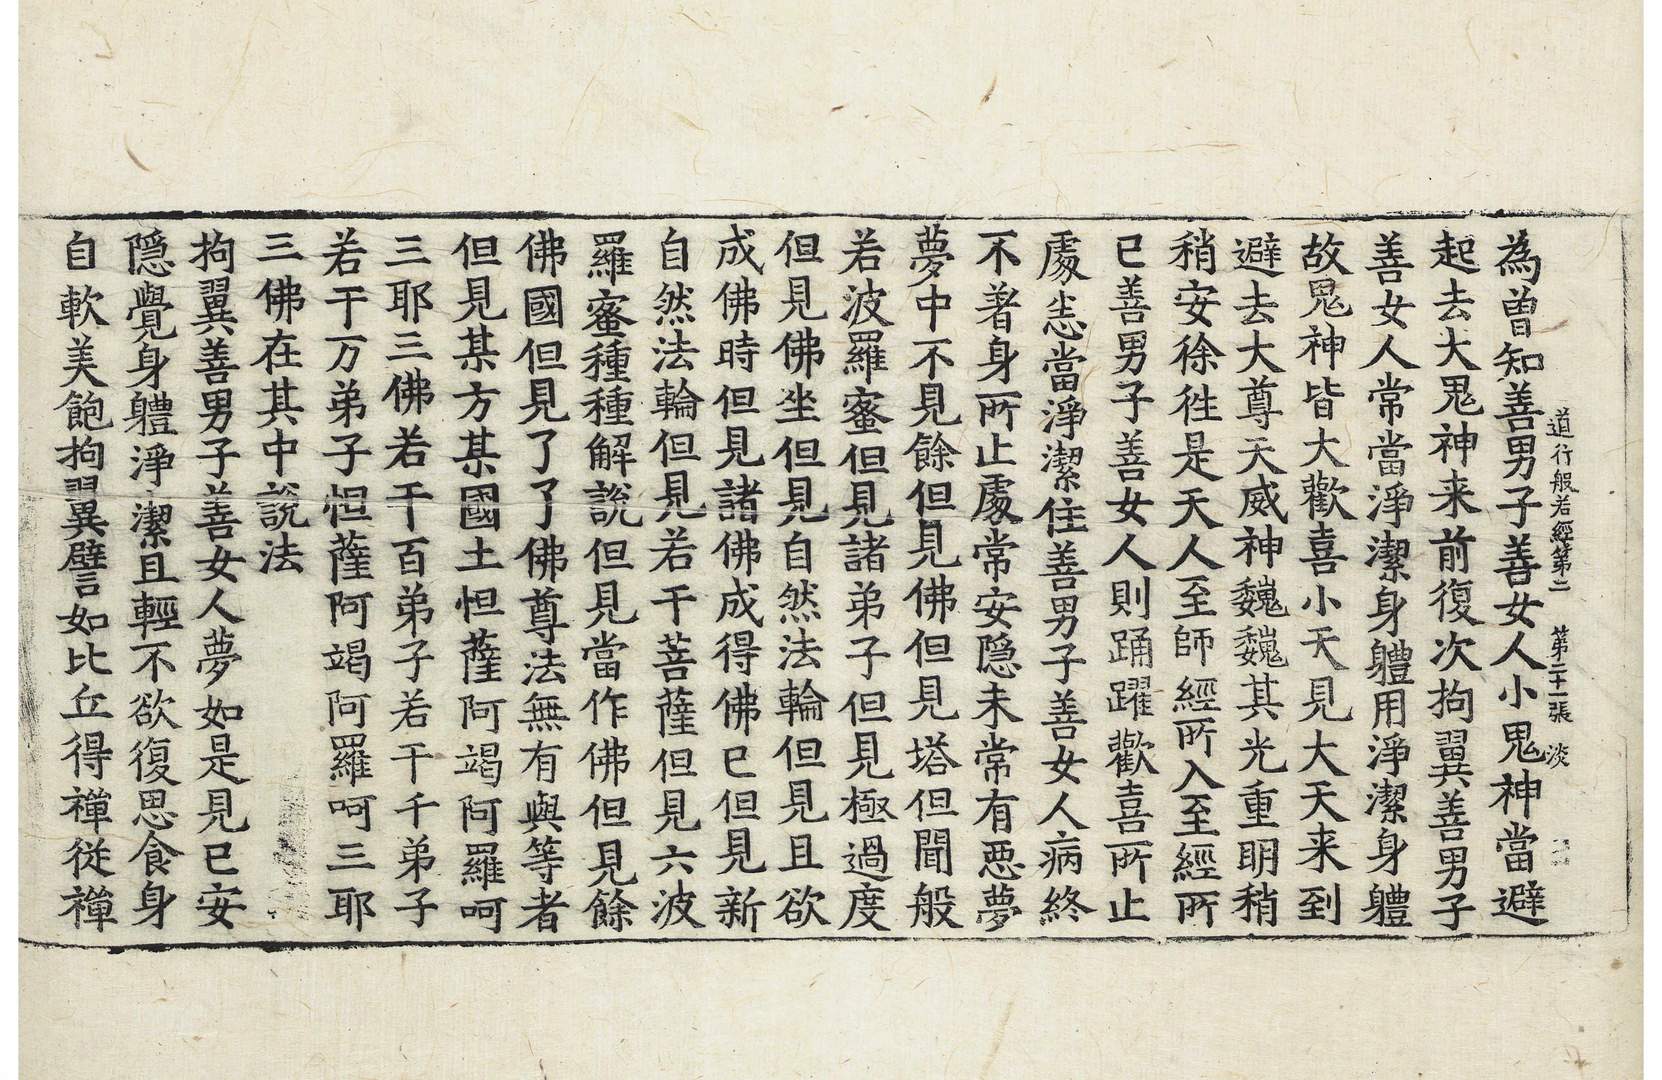 道行般若經第二　第二十一張　淡
為曾知善男子善女人小鬼神當避
起去大鬼神来前復次拘翼善男子
善女人常當淨潔身軆用淨潔身軆
故鬼神皆大歡喜小天見大天来到
避去大尊天威神巍巍其光重明稍
稍安徐徃是天人至師經所入至經所
已善男子善女人則踊躍歡喜所止
處悉當淨潔住善男子善女人病終
不著身所止處常安隱未常有惡夢
夢中不見餘但見佛但見塔但聞般
若波羅蜜但見諸弟子但見極過度
但見佛坐但見自然法輪但見且欲
成佛時但見諸佛成得佛已但見新
自然法輪但見若干菩薩但見六波
羅蜜種種解說但見當作佛但見餘
佛國但見了了佛尊法無有與等者
但見某方某國土怛薩阿竭阿羅呵
三耶三佛若干百弟子若干千弟子
若干万弟子怛薩阿竭阿羅呵三耶
三佛在其中說法
拘翼善男子善女人夢如是見已安
隱覺身軆淨潔且輕不欲復思食身
自軟美飽拘翼譬如比丘得禪從禪